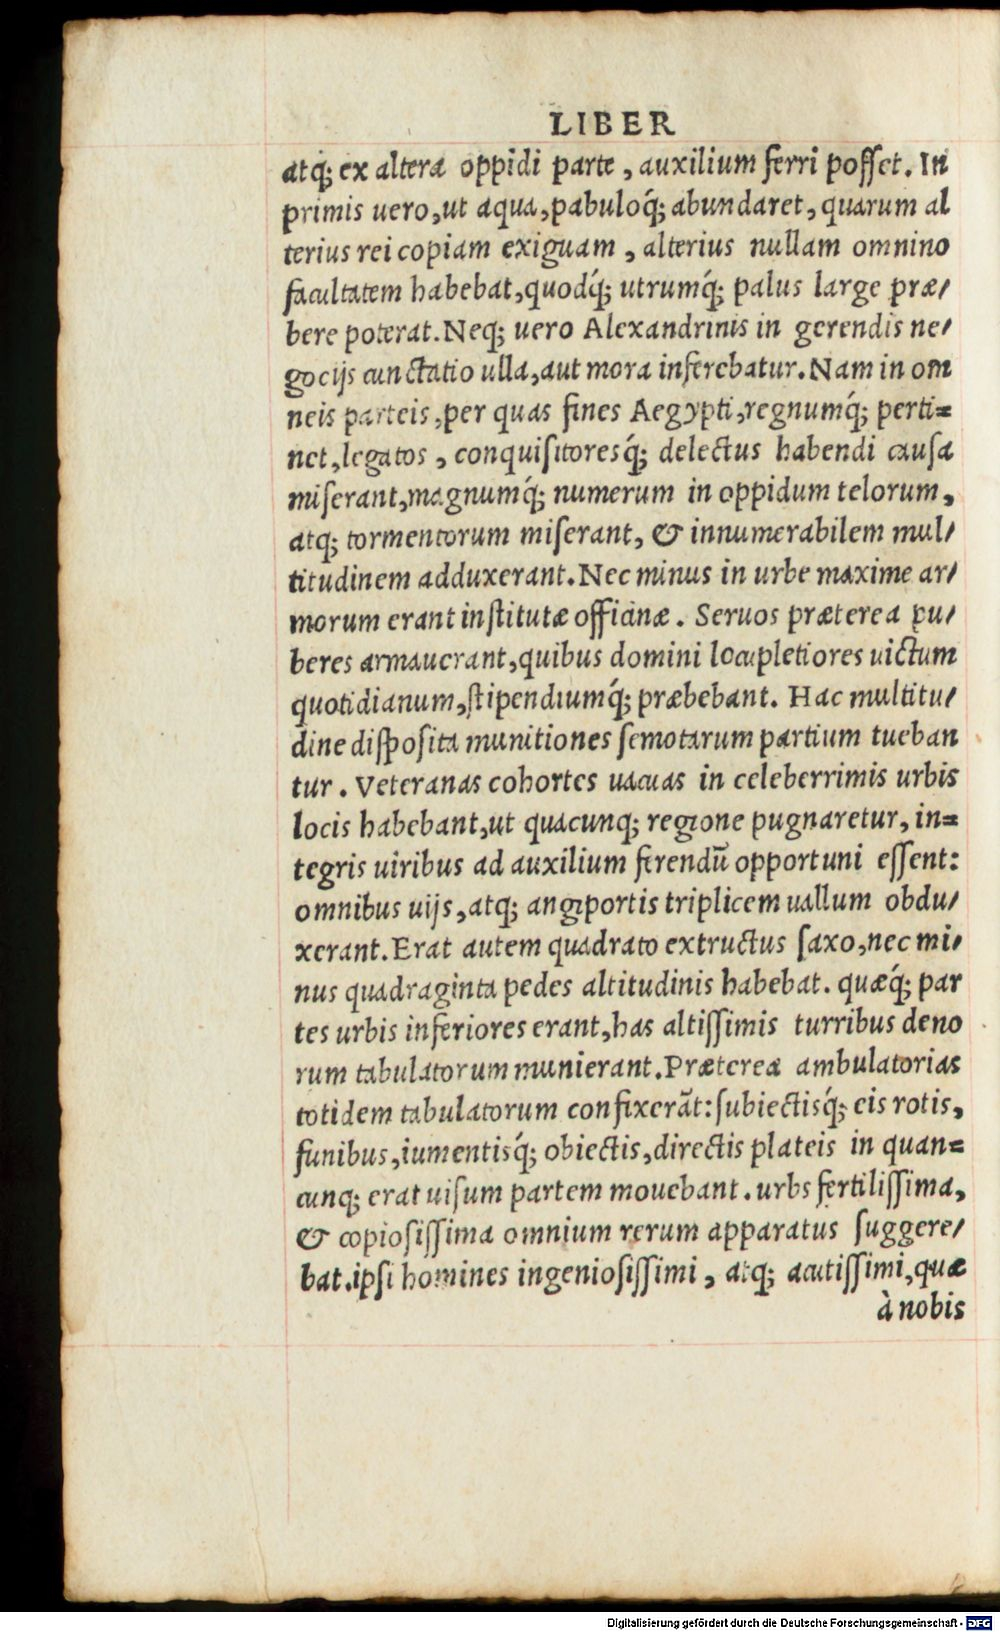 LIBER
atq́; ex altera oppidi parte, auxilium ferri posset. In
primis uero, ut aqua, pabuloq́; abundaret, quarum al
terius rei copiam exiguam, alterius nullam omnino
facultatem habebat, quodq́; utrumq́; palus large præ/
bere poterat. Neq; uero Alexandrinis in gerendis ne/
gocijs cunctatio ulla, aut mora inferebatur. Nam in om
neis parteis, per quas fines Aegypti, regnumq́; perti=
net, legatos, conquisitoresq́; delectus habendi causa
miserant, magnumq́; numerum in oppidum telorum,
atq; tormentorum miserant, & innumerabilem mul/
titudinem adduxerant. Nec minus in urbe maxime ar/
morum erant institutæ officinæ. Seruos præterea pu/
beres armauerant, quibus domini locupletiores uictum
quotidianum, stipendiumq́; præbebant. Hac multitu/
dine disposita munitiones semotarum partium tueban
tur. Veteranas cohortes uacuas in celeberrimis urbis
locis habebant, ut quacunq; regione pugnaretur, in=
tegris uiribus ad auxilium ferendū opportuni essent:
omnibus uijs, atq; angiportis triplicem uallum obdu/
xerant. Erat autem quadrato extructus saxo, nec mi/
nus quadraginta pedes altitudinis habebat. quæq́; par
tes urbis inferiores erant, has altissimis turribus deno
rum tabulatorum munierant. Præterea ambulatorias
totidem tabulatorum confixerāt: subiectisq́; eis rotis,
funibus, iumentisq́; obiectis, directis plateis in quan=
cunq; erat uisum partem mouebant. urbs fertilissima,
& copiosissima omnium rerum apparatus suggere/
bat. ipsi homines ingeniosissimi, atq; acutissimi, quæ
à nobis
Digitalisierung gefördert durch die Deutsche Forschungsgemeinschaft - DFG